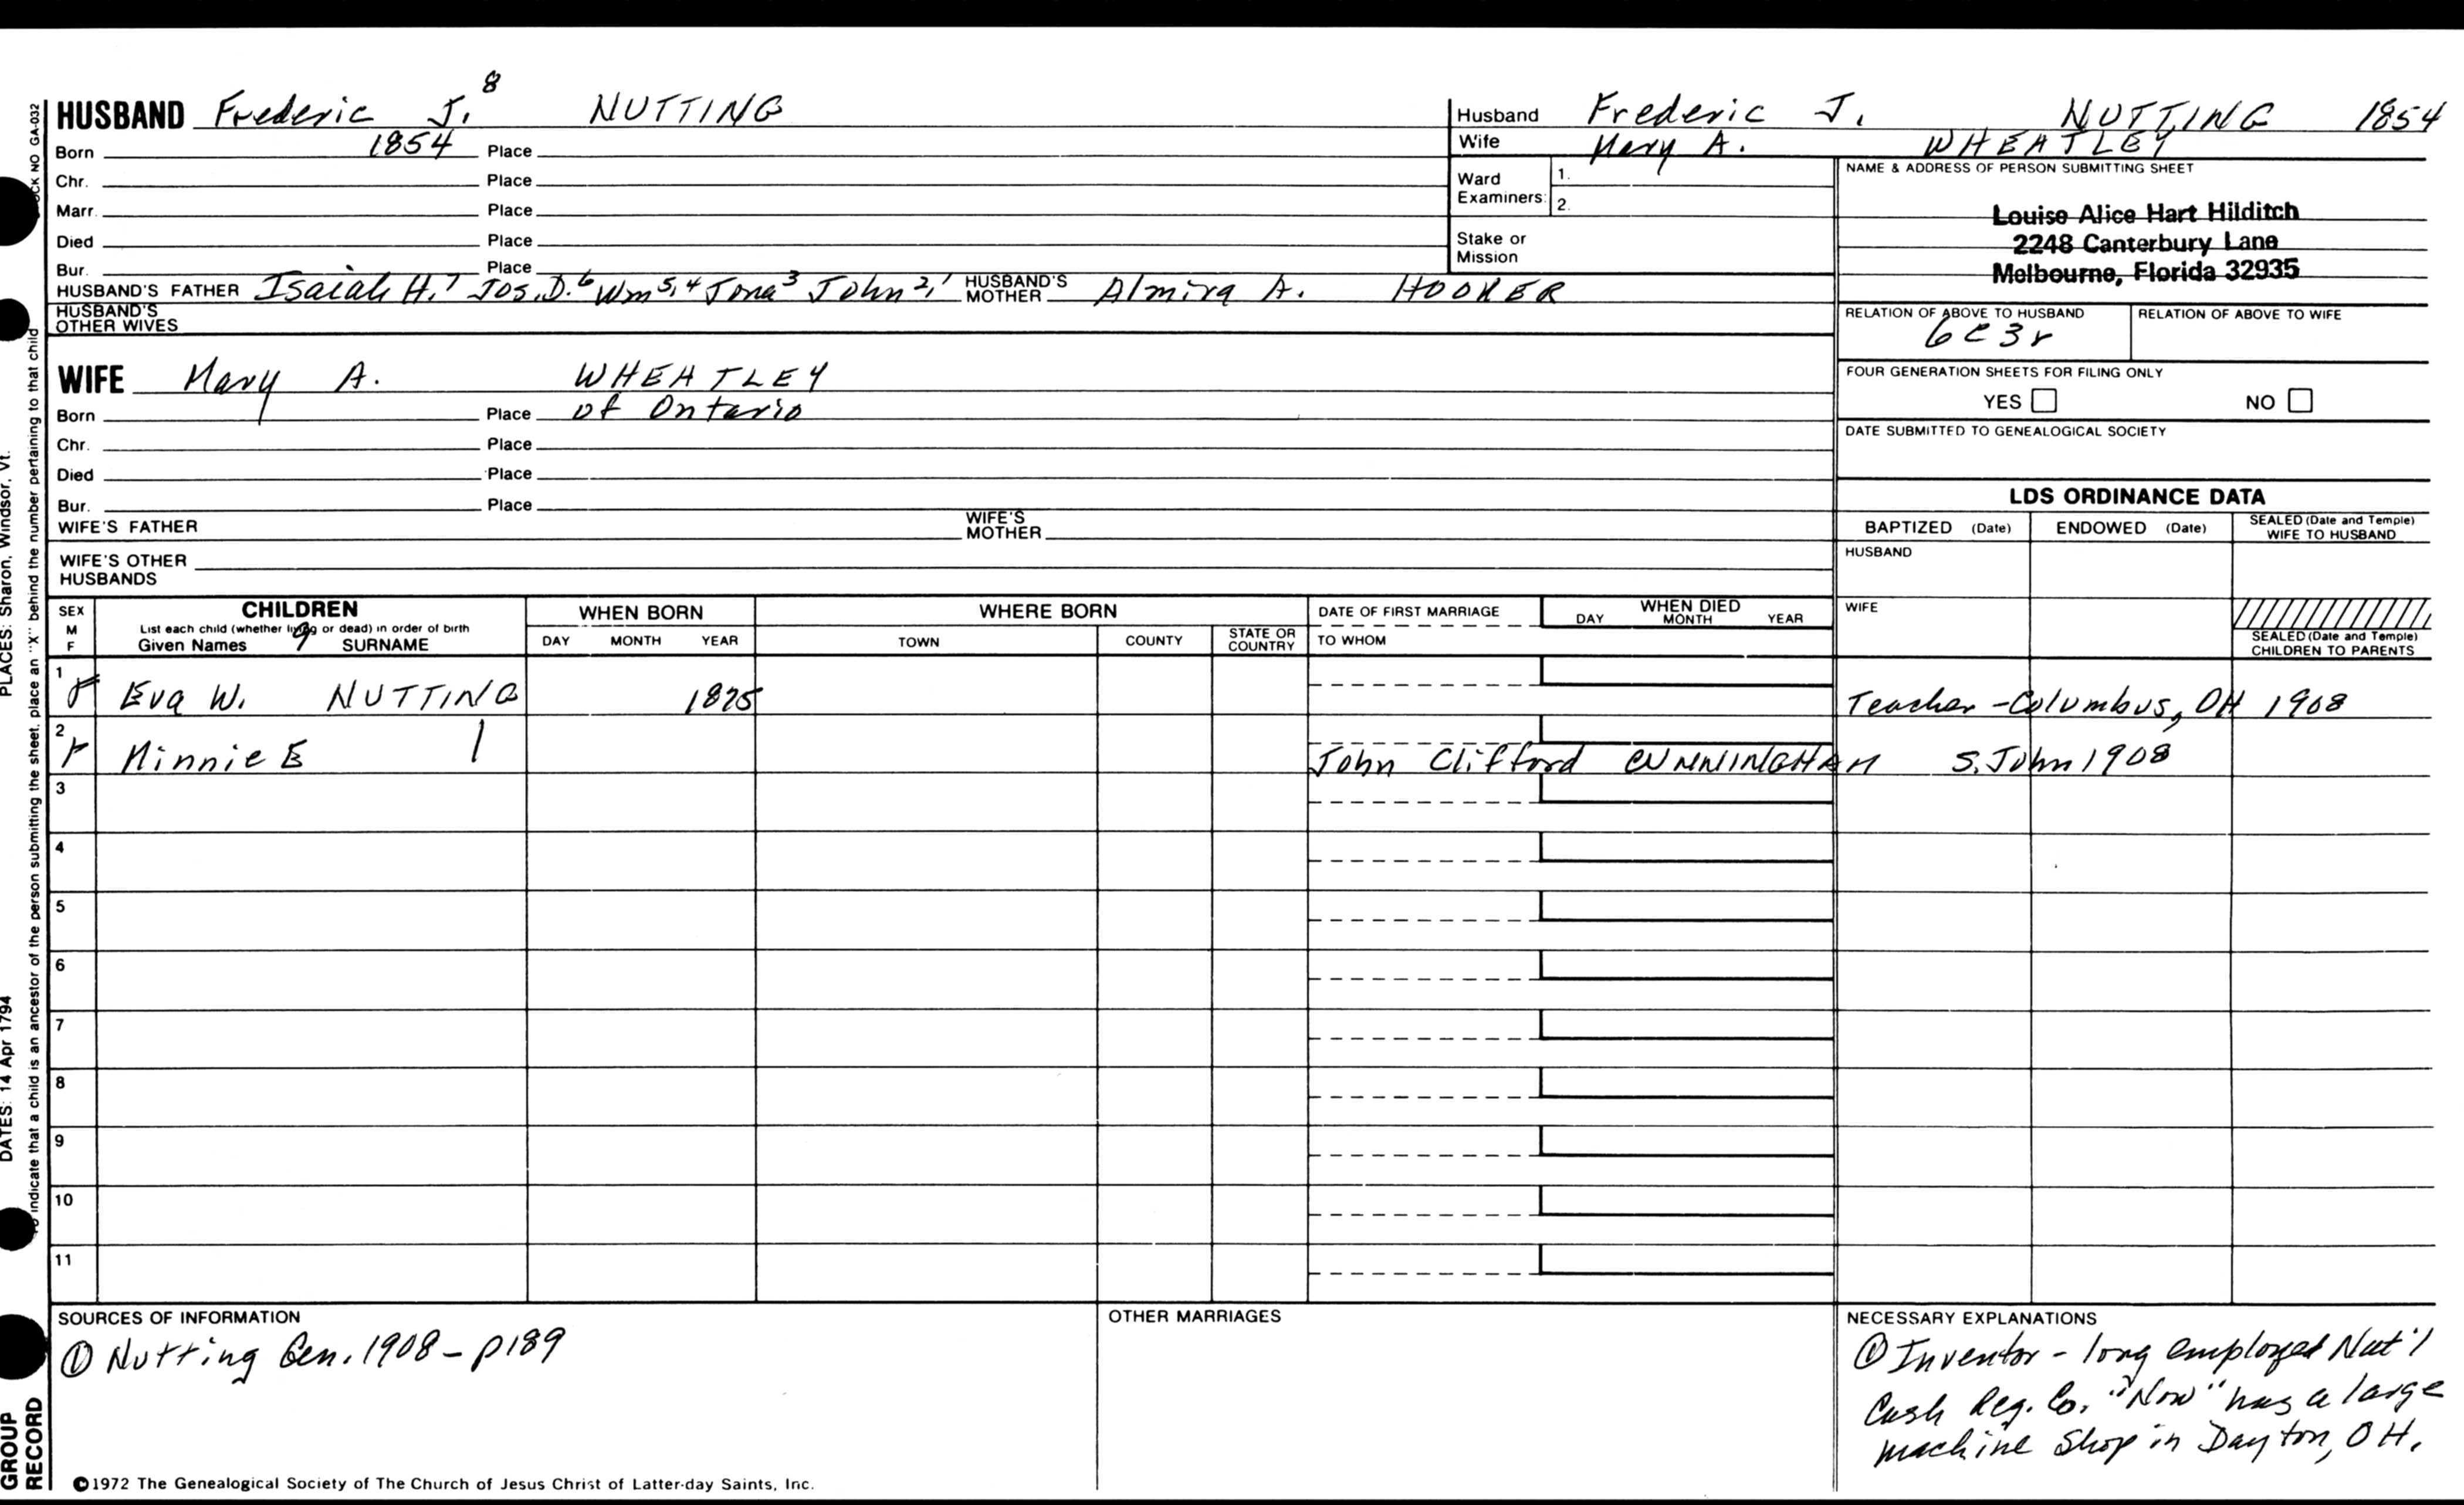 HUSBAND Frederic J.8 NUTTING
Born 1854 Place
Chr. Place
Marr. Place
Died Place
Bur. Place
HUSBAND'S FATHER Isaiah H.7 Jos. D.6 Wm5,4 Jona3 John2,1 HUSBAND'S MOTHER Almira A. HOOKER
HUSBAND'S OTHER WIVES
Husband Frederic J. NUTTING 1854
Wife Mary A. WHEATLEY
Ward Examiners: 1.
2.
Stake or Mission
NAME & ADDRESS OF PERSON SUBMITTING SHEET
Louise Alice Hart Hilditch
2248 Canterbury Lane
Melbourne, Florida 32935
RELATION OF ABOVE TO HUSBAND
6C3r
RELATION OF ABOVE TO WIFE
FOUR GENERATION SHEETS FOR FILING ONLY
YES NO
DATE SUBMITTED TO GENEALOGICAL SOCIETY
WIFE Mary A. WHEATLEY
Born Place of Ontario
Chr. Place
Died Place
Bur. Place
WIFE'S FATHER WIFE'S MOTHER
WIFE'S OTHER HUSBANDS
LDS ORDINANCE DATA
BAPTIZED (Date) ENDOWED (Date) SEALED (Date and Temple) WIFE TO HUSBAND
HUSBAND
WIFE
SEALED (Date and Temple) CHILDREN TO PARENTS
SEX M F
CHILDREN
List each child (whether living or dead) in order of birth
Given Names 9 SURNAME
WHEN BORN
DAY MONTH YEAR
WHERE BORN
TOWN COUNTY STATE OR COUNTRY
DATE OF FIRST MARRIAGE
TO WHOM
WHEN DIED
DAY MONTH YEAR
1 F Eva W. NUTTING 1875 Teacher - Columbus, OH 1908
2 F Minnie E | John Clifford CUNNINGHAM S. John 1908
3
4
5
6
7
8
9
10
11
SOURCES OF INFORMATION
① Nutting Gen. 1908 - p189
OTHER MARRIAGES
NECESSARY EXPLANATIONS
① Inventor - long employed Nat'l
Cash Reg. Co. "Now" has a large
machine shop in Dayton, OH.
©1972 The Genealogical Society of The Church of Jesus Christ of Latter-day Saints, Inc.
GROUP
RECORD
DATES: 14 Apr 1794
PLACES: Sharon, Windsor, Vt.
indicate that a child is an ancestor of the person submitting the sheet, place an "X" behind the number pertaining to that child
NO GA-032